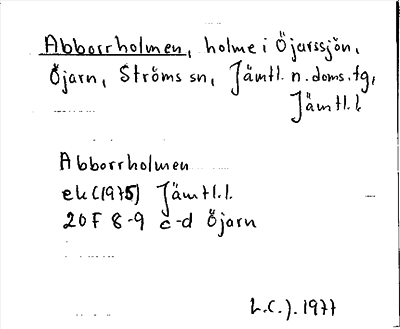 Abborrholmen, holme i Öjarssjön,
Öjarn, Ströms sn, Jämtl. n. doms. tg,
Jämtl. l.
Abborrholmen
ek (1975) Jämtl. l.
20 F 8-9 c-d Öjarn
L.C.J. 1977